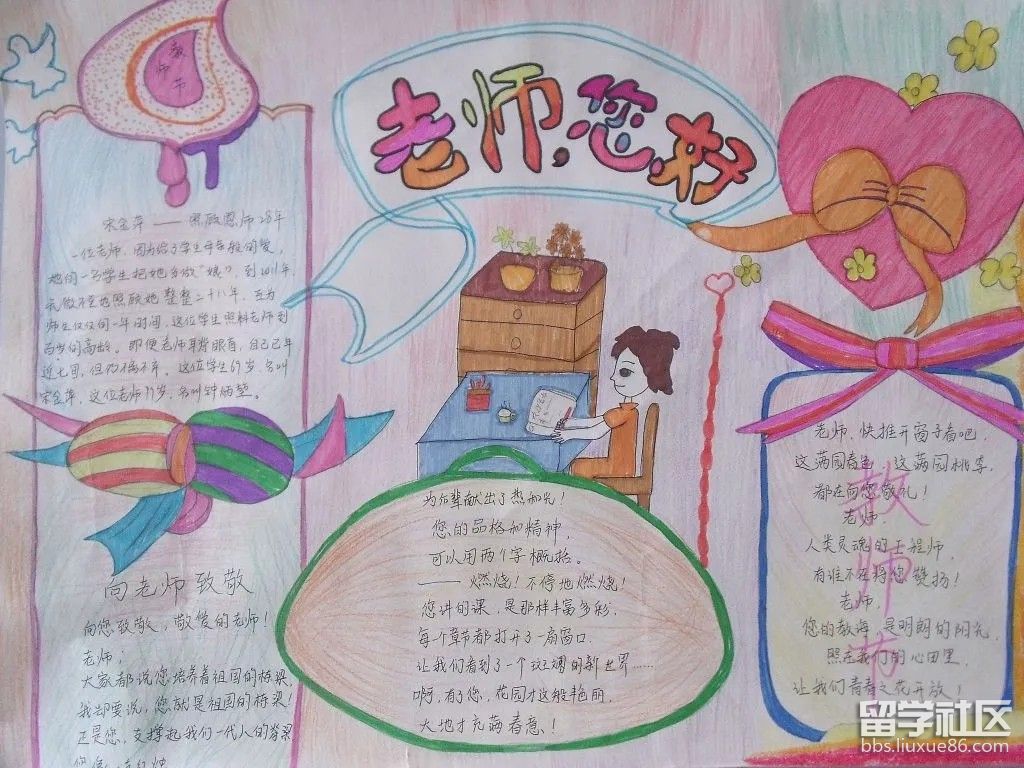 教师节
老师,您好
宋金萍——照顾恩师28年
一位老师,因为给了学生母亲般的爱,
她的一名学生把她当做“娘”,到2011年,
无微不至地照顾她整整二十八年,互为
师生仅仅的一年时间,这位学生照料老师到
百岁的高龄。即便老师耳聋眼盲,自己已年
近七旬,但仍不离不弃,这位学生67岁,名叫
宋金萍,这位老师
向老师致敬
向您致敬,敬爱的老师!
老师;
大家都说您培养着祖国的栋梁,
我却要说,您就是祖国的栋梁!
正是您,支撑起我们一代人的脊梁
为后辈献出了热和光!
您的品格和精神,
可以用两个字概括。
——燃烧!不停地燃烧!
您讲的课,是那样丰富多彩,
每个章节都打开了一扇窗口,
让我们看到了一个斑斓的新世界……
啊,有了您,花园才这般艳丽,
大地才充满春意!
教师节
老师,快推开窗子看吧,
这满园春色,这满园桃李,
都在向您敬礼!
老师,
人类灵魂的工程师,
有谁不在将您赞扬!
老师,
您的教诲,是明朗的阳光,
照在我们的心田里,
让我们青春之花开放!
留学社区
bbs.liuxue86.com